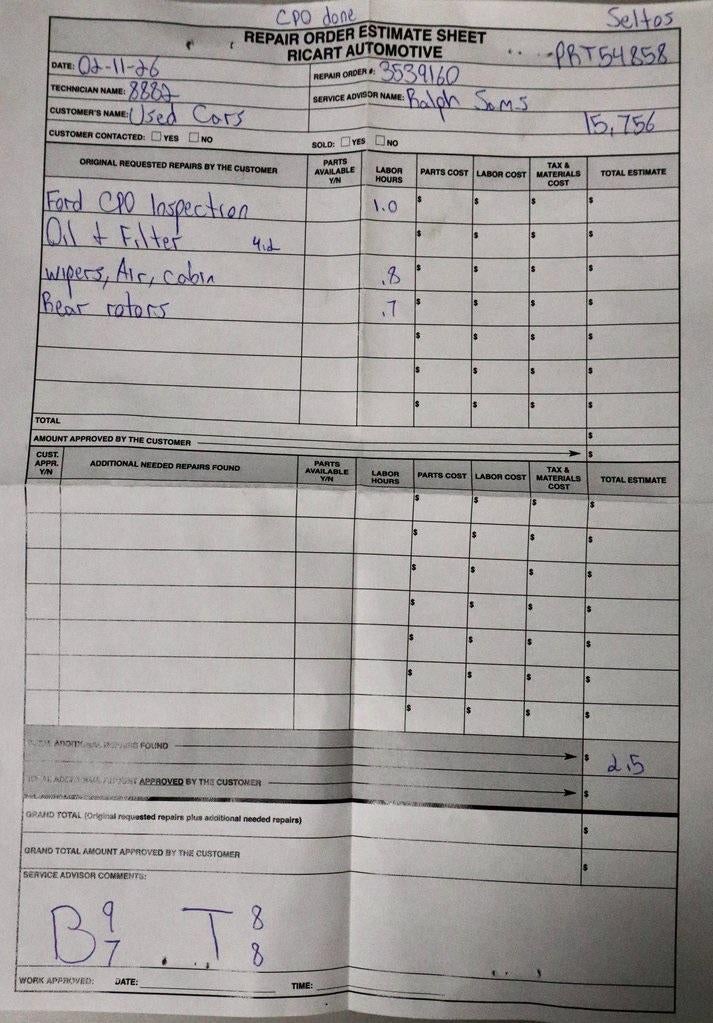 CPO done
Seltos
REPAIR ORDER ESTIMATE SHEET
RICART AUTOMOTIVE
PRT54858
DATE: 02-11-26
REPAIR ORDER #: 3539160
TECHNICIAN NAME: 8882
SERVICE ADVISOR NAME: Ralph Sams
CUSTOMER'S NAME: Used Cars
15,756
CUSTOMER CONTACTED: YES NO
SOLD: YES NO
ORIGINAL REQUESTED REPAIRS BY THE CUSTOMER PARTS AVAILABLE Y/N LABOR HOURS PARTS COST LABOR COST TAX & MATERIALS COST TOTAL ESTIMATE
Ford CPO Inspection 1.0 $ $ $ $
Oil & Filter 4.2 $ $ $ $
wipers, Air, cabin .8 $ $ $ $
Rear rotors .7 $ $ $ $
$ $ $ $
$ $ $ $
$ $ $ $
TOTAL $
AMOUNT APPROVED BY THE CUSTOMER $
CUST. APPR. Y/N ADDITIONAL NEEDED REPAIRS FOUND PARTS AVAILABLE Y/N LABOR HOURS PARTS COST LABOR COST TAX & MATERIALS COST TOTAL ESTIMATE
$ $ $ $
$ $ $ $
$ $ $ $
$ $ $ $
$ $ $ $
$ $ $ $
$ $ $ $
ADDITIONAL REPAIRS FOUND $ 2.5
TOTAL ADDITIONAL AMOUNT APPROVED BY THE CUSTOMER $
GRAND TOTAL (Original requested repairs plus additional needed repairs) $
GRAND TOTAL AMOUNT APPROVED BY THE CUSTOMER $
SERVICE ADVISOR COMMENTS:
B 9 7 T 8 8
WORK APPROVED: DATE: TIME: